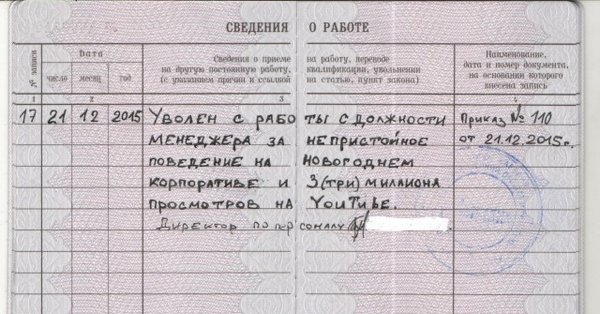 СВЕДЕНИЯ О РАБОТЕ
№ записи
Дата
число месяц год
Сведения о приеме на работу, переводе
на другую постоянную работу, квалификации, увольнении
(с указанием причин и ссылкой на статью, пункт закона)
Наименование,
дата и номер документа,
на основании которого
внесена запись
1 2 3 4
17 21 12 2015 Уволен с работы с должности Приказ № 110
менеджера за непристойное от 21.12.2015г.
поведение на новогоднем
корпоративе и 3(три) миллиона
просмотров на YouTube.
Директор по персоналу